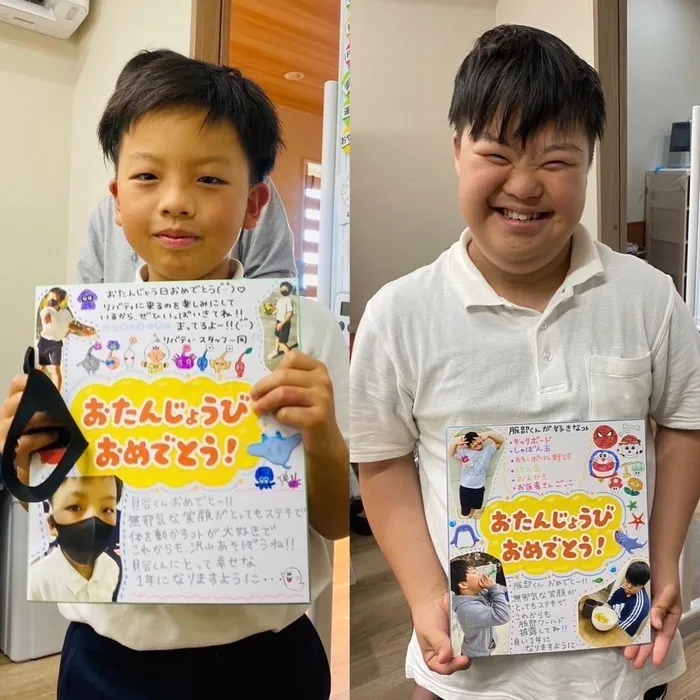 おたんじょう日おめでとう(¨)♡
リバティに来るのを楽しみにして
いるから、ぜひいっぱいきてね!!
まってるよー!!(¨)
リバティ・スタッフ一同
おたんじょうび
おめでとう!
貝谷くんおめでとー!!
無邪気な笑顔がとってもステキで
体を動かすコトが大好きで
これからも、沢山あそぼうね!!
貝谷くんにとって幸せな
1年になりますように・・・
服部くんが好きなコト
・キックボード
・しゃぼん玉
・カラーボール野球
・お医者さんごっこ
おたんじょうび
おめでとう!
服部くん おめでとー!!
無邪気な笑顔が
とってもステキで
これからも
服部ワールド
披露してね!!
良い1年に
なりますように